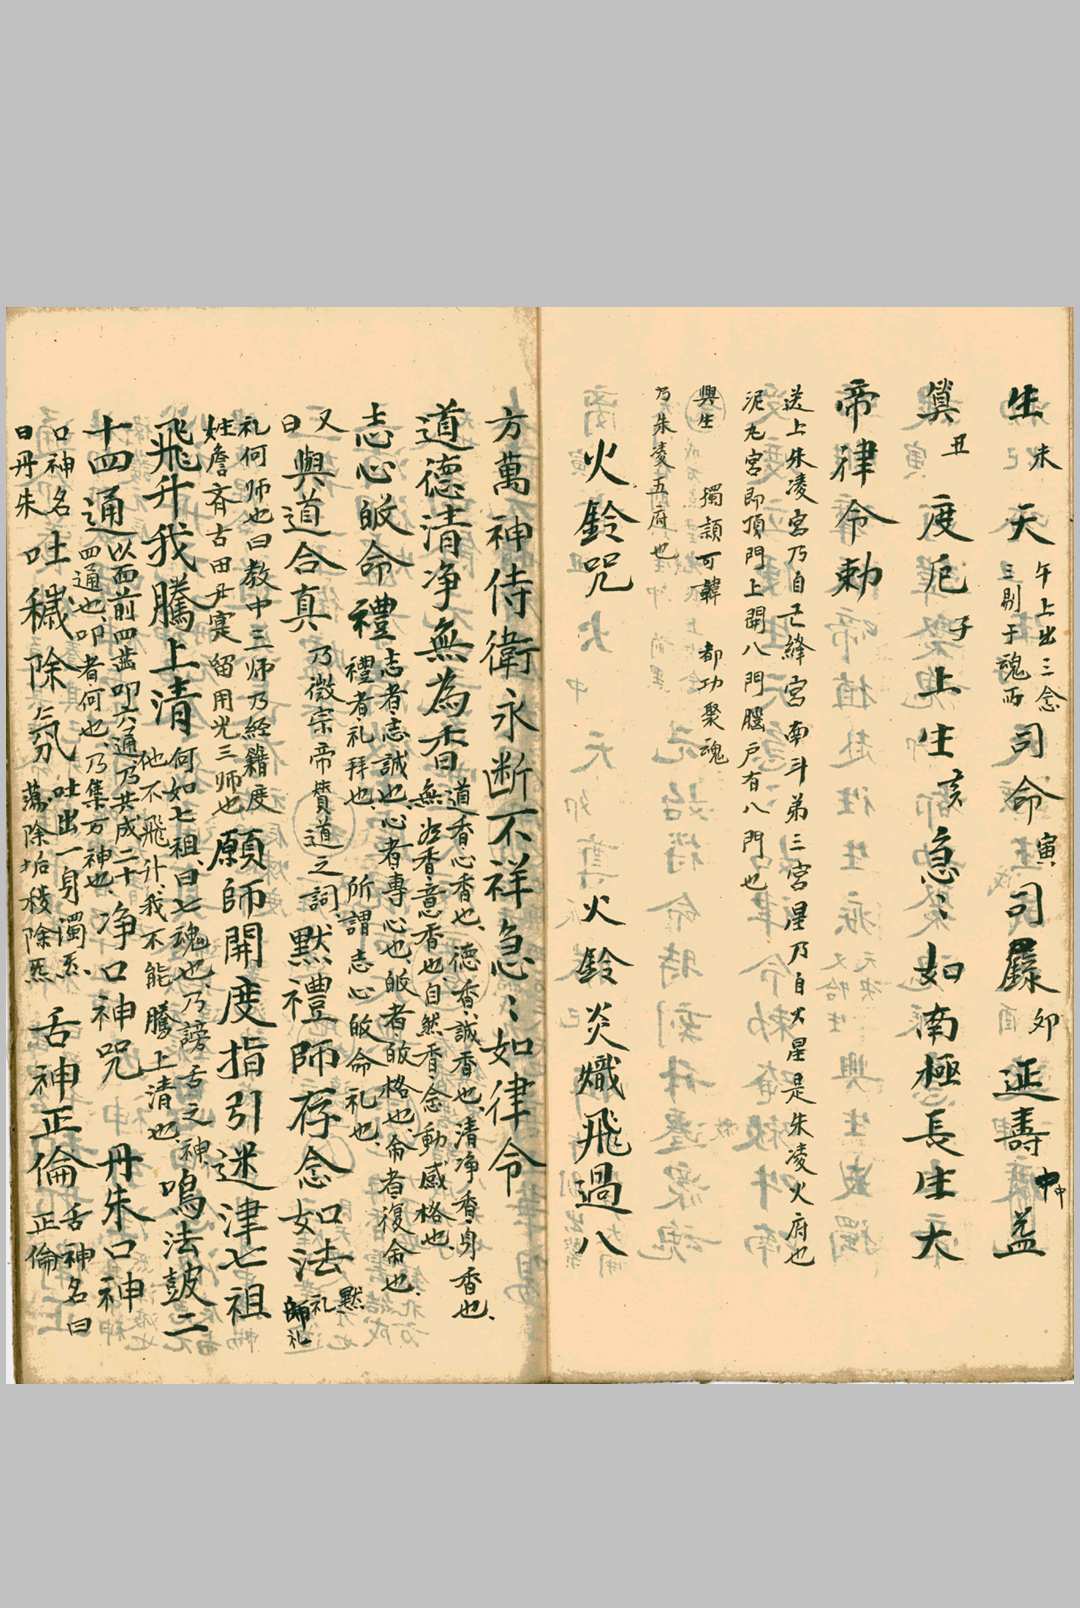 生未天午上出三念三剔于魂两司命寅司羅卯延壽中申益
筭丑度厄子上生亥急〻如南極長生大
帝律令勅
送上朱凌宮乃自工絳宮南斗弟三宮星乃自火星是朱凌火府也
泥丸宮即頂門上開八門腦戶有八門也
興生 獨頷可韓 都功聚魂
乃朱凌五府也
火鈴咒 火鈴炎熾飛過八
方萬神侍衛永斷不祥急〻如律令
道德清净無為香道香心香也德香誠香也清净香身香也
無為香意香也自然香念動感格也
志心皈命禮志者志誠也心者專心也皈者皈格也命者復命也
禮者礼拜也 所謂志心皈命礼也
又曰與道合真乃徽宗帝賛道之詞默禮師存念如法默礼師礼
礼何师也曰教中三师乃經籍度
姓詹斉古田丹寔留用光三师也願師開度指引迷津七祖
飛升我騰上清何如七祖曰七魂也乃謗舌之神
他不飛升我不能騰上清也鳴法皷二
十四通以面前四齒叩六通乃共成二十
四通也叩者何也乃集万神也净口神咒 丹朱口神
口神名曰丹朱吐穢除氛吐出一身濁炁
蕩除垢穢除炁舌神正倫舌神名曰正倫